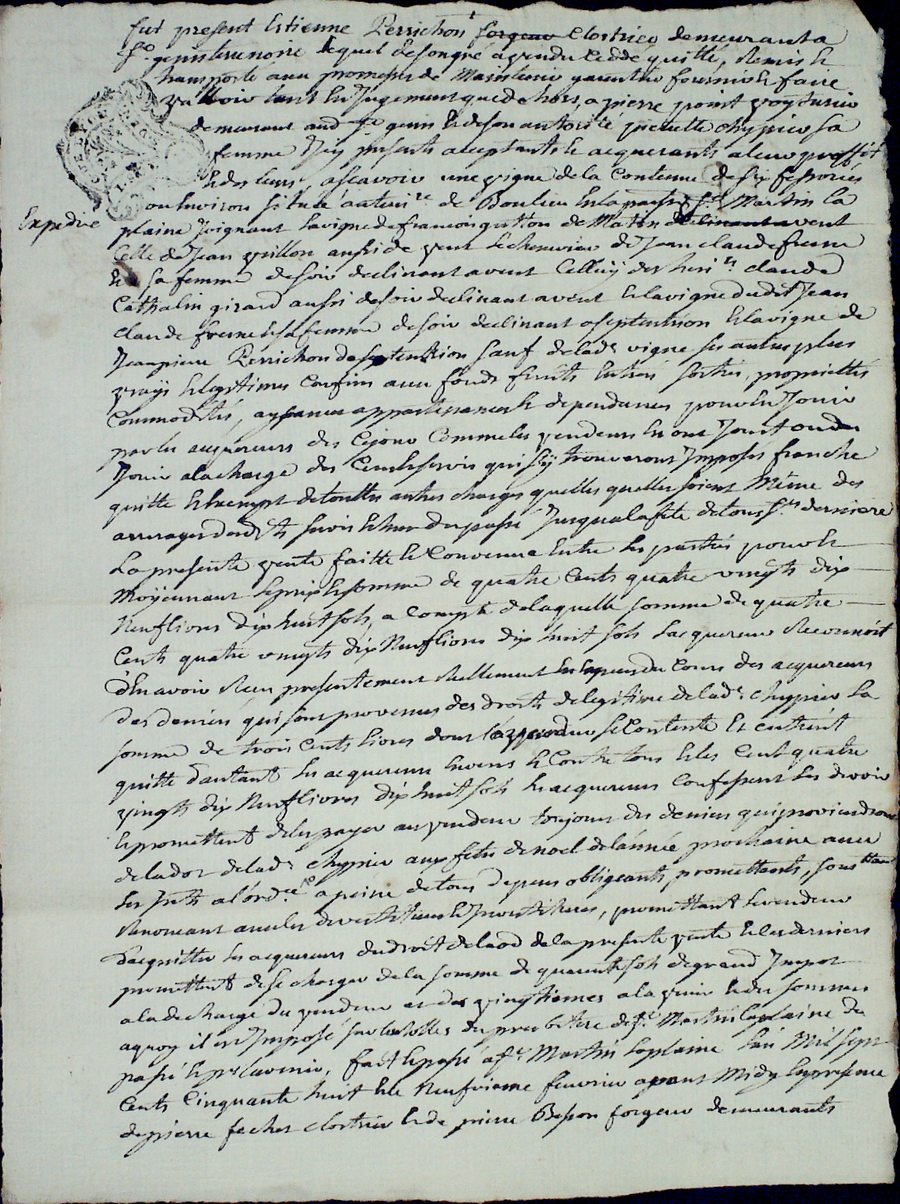 fut present Estienne Perrichon forgeur clostrier demeurant a
st genis terrenoire lequel de son gré a vendu ceddé quitté, remis et
transporte avec promesse de maintenir garentir fournir et faire
valloir tant en jugement que dehors, a pierre point
demeurant aud. st genis et de son autorité pierrette chypier sa
femme Icy presents acceptants et acquerants a leur proffit
et des leurs, ascavoir une vigne de la contenue de six fessorées
ou environ situee au terre. de Boulieu en la parroisse st Martin la
Expediée
plaine joignant la vigne de francois gution de matin declinant a vent
celle de Jean guillon aussi de vent le chenevier de Jean claude fresne
et sa femme de soir declinant a vent celluy des heri.rs claude
Cathalin girard aussi de soir declinant a vent et la vigne dudit Jean
claude fresne et sa femme de soir declinant a septentrion et la vigne de
Jean pierre Perrichon de septentrion sauf de lade. vigne ses autres plus
vrays et legitimes confins avec fonds fruits entrées sorties, proprietés
commodités, aysances appartenances et dependances pour en jouir
par les acquereurs des ce jour comme les vendeurs en ont jouit ou du
jouir a la charge des cens et servis qui s'y trouveront imposés franche
quitte et exempt de touttes autres charges quelles quelles soient même des
arrerages desdts servis et du passé jusqua la fete de tous sts derniere
La presente vente faitte et convenue entre les parties pour et
moÿennant le prix et somme de quatre cents quatre vingts dix
neuf livres dix huit sols, a compte de laquelle somme de quatre
cents quatre vingts dix neuf livres dix huit sols le vendeur reconnoit
d'en avoir reçu presentement reellement en especes du cours des acquereurs
des deniers qui sont provenus des droits de legitime de lade. chypier la
somme de trois cents livres dont le vendeur se contente et en tient
quitte d'autant les acquereurs envers et contre tous et les cent quatre
vingts dix neuf livres dix huit sols les acquereurs confessent les devoir
et promettent de les payer au vendeur toujours des deniers qui proviendront
de la dot de lade. chypier aux fetes de noel de l'année prochaine avec
les jnts a l'ord.ce a peine de tous depens obligeants, promettants, sous
renoncant avec les devestitures et investitures, promettant le vendeur
d'acquitter les acquereurs du droit de laod de la presente vente et les derniers
promettent de se charger de la somme de quarente sols de grand Impot
a la decharge du vendeur et des vingtiemes a la venir et des sommes
a quoy il est Imposé sur les rolles du presbitere de st Martin la plaine du
passé et pr l'avenir. fait et passé a st Martin la plaine l'an mil sept
cents cinquante huit et le neufvieme fevrier apres midy en presence
de pierre fechet clostrier et de pierre Besson forgeur demeurants